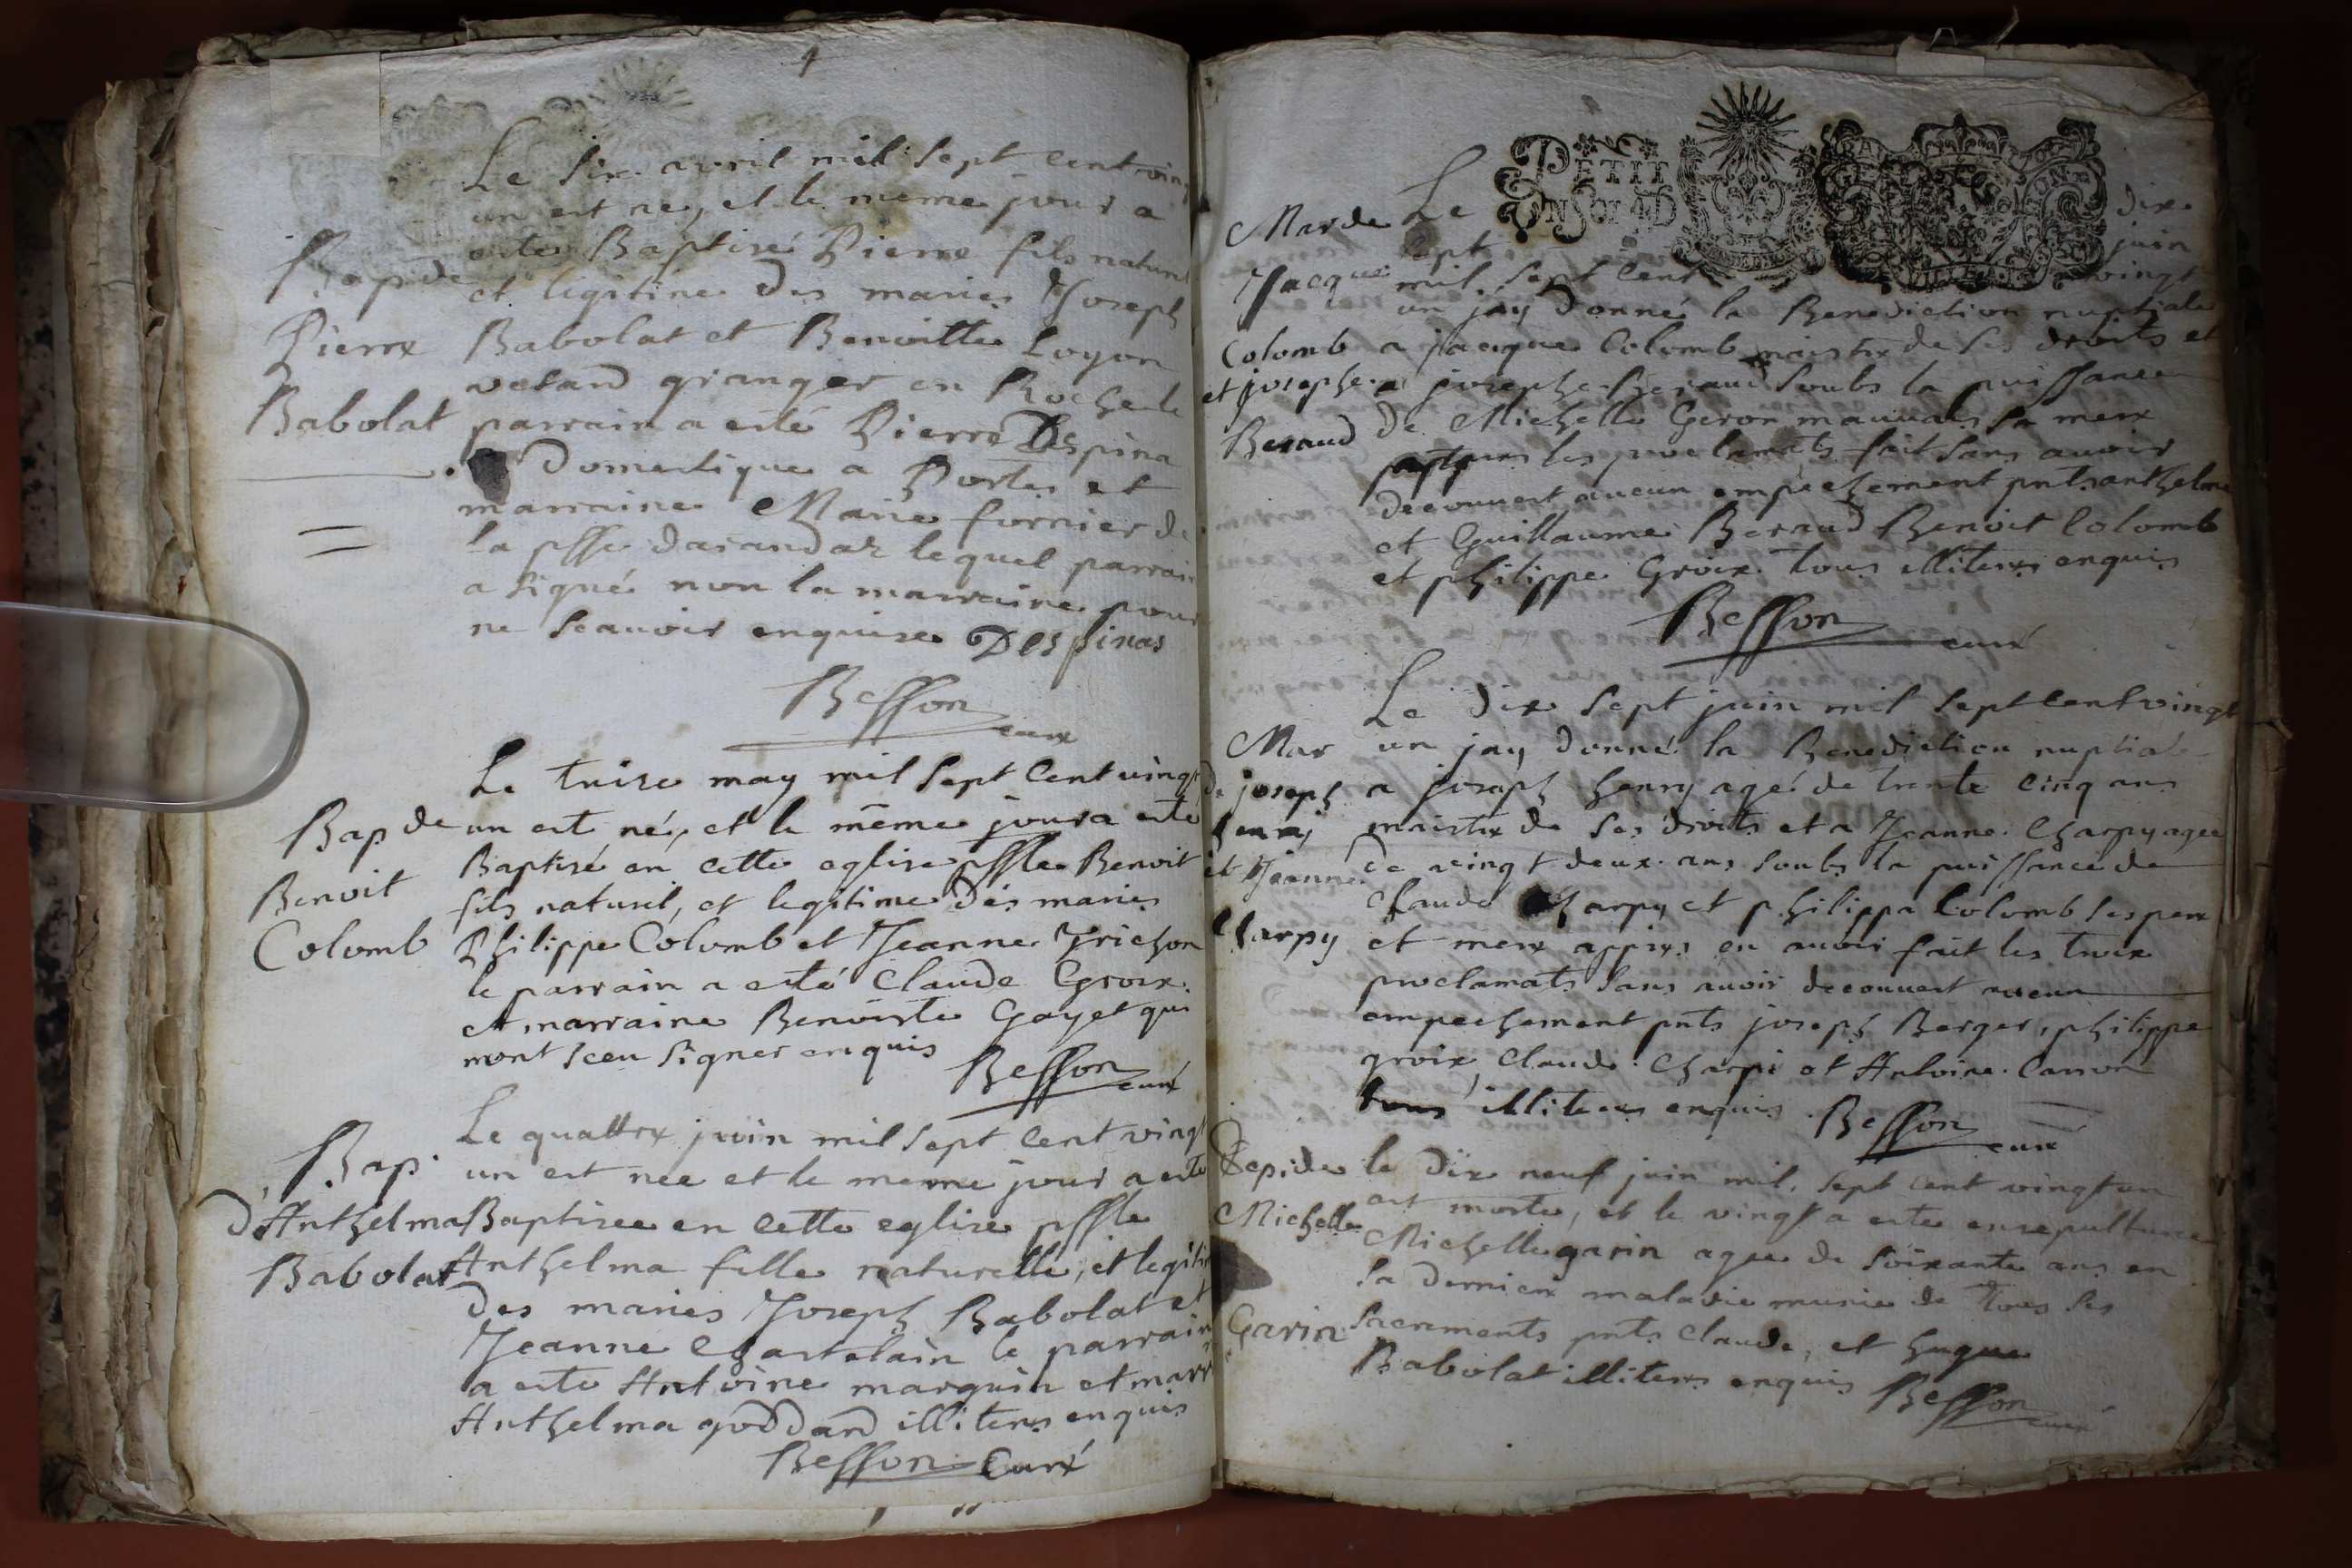 Le six avril mil sept cent ving
un est né, et le meme jour a
esté Baptisé Pierre fils naturel
Bap de
et legitime des maries Joseph
Pierre
Babolat et Benoitte Loyon
granger en Roche le
Babolat
parrain a esté Pierre Despina
Domestique a Portes et
marraine Marie fornier de
la psse darandaz lequel parrain
a signé non la marraine pour
ne scauoir enquise Despinas
Besson
curé
Le treise may mil sept cent vingt
Bap de
un est né, et le même jour a esté
Baptisé en cette eglise pslle Benoit
Benoit
fils naturel, et legitime des maries
Colomb
Philippe Colomb et Jeanne Trichon
le parrain a esté Claude Groix
et marraine Benoiste Gayet qui
mont sceu signer enquis
Besson
curé
Le quattre juin mil sept cent vingt
Bap.
un est née et le meme jour a esté
d'Anthelma
Baptisee en cette eglise pslle
Babolat
Anthelma fille naturelle, et legiti
des maries Joseph Babolat et
Jeanne Chastelain le parrain
a esté Antoine marquin et marr
Anthelma goddard illiteres enquis
Besson Curé
PETIT
Mar de
Le dix
sept juin
Jacque
mil sept cent vingt
un jay donné la Benediction nuptiale
Colomb
a jacque Colomb maistre de ses droits et
et josephe
a josephe Beraud soubs la puissance
Beraud
de Michelle Geron mauuais sa mere
apres les proclamats fait sans auoir
decouuert aucun empechement pnts anthelme
et Guillaume Beraud Benoit Colomb
et philippe Groix tous illiteres enquis
Besson
curé
Le dix sept juin mil sept cent vingt
Mar
un jay donné la Benediction nuptiale
de joseph
a joseph henry agé de trente cinq ans
henry
maistre de ses droits et a Jeanne Charpy agee
et Jeanne
de vingt deux ans soubs la puissance de
Claude Charpy et philippa Colomb ses pere
Charpy
et mere appres en auoir fait les trois
proclamats sans auoir decouuert aucun
empechement pnts joseph Berger, philippe
groix, Claude Charpi et Antoine Carron
tous illiteres enquis
Besson
curé
Sepi de
le dix neuf juin mil sept cent vingt un
Michelle
est morte, et le vingt a esté ensepulturee
Michelle garin agee de soixante ans en
sa derniere maladie munie de tous ses
Garin
sacrements pnts Claude, et hugue
Babolat illiteres enquis
Besson
curé